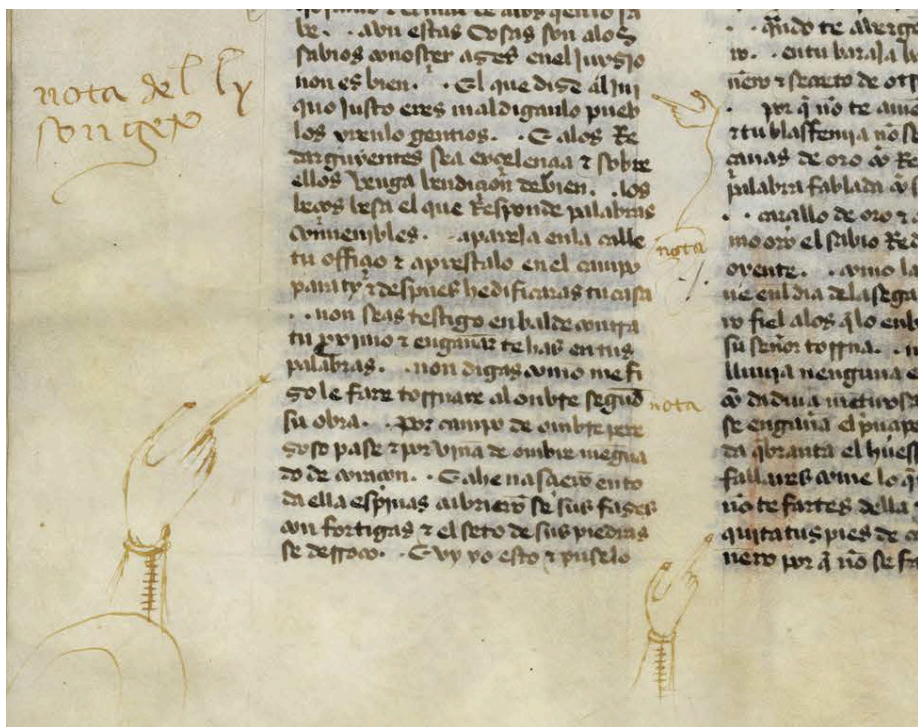 nota del ly
songero
be. · aun estas Cosas son alos
sabios conosçer açes enel juyzio
non es bien. · El que dize al ini
quo justo eres maldiganlo pueb
los yrenlo gentios. · E alos Re
darguyentes sea exçelençia τ sobre
ellos venga bendiçion de bien. · los
beços besa el que Responde palabras
convenibles. · apareja enla calle
tu offiçio τ aprestalo en el campo
para ty τ despues hedificaras tu casa
· · non seas testigo en balde contra
tu proximo τ engañar te has en tus
palabras. · non digas como me fi
zo le fare tornare al onbre segũd
su obra. · por campo de ombre pere
zoso pase τ por viña de ombre mengua
do de coraçon. · E ahe nasçierõ en to
da ella espinas cubrierõ se sus fazes
con fortigas τ el seto de sus piedras
se derroco. · E vy yo esto τ puselo
nota
nota
· · q̃ndo te averge
ro. · en tu baraja
nero τ secreto de otr
por q̃ nõ te
τ tu blasfemia nõ se
çanas de oro cõ Re
palabra fablada cõ
· · çarallo de oro τ
mo oro el sabio Red
oyente. · como la
ue enl dia dela sega
ro fiel alos q̃ lo enb
su señor torrna.
lluuia nenguna e
cõ dadiua mitirosa
se engaña el prinçipe
da q̃branta el huess
fallares come lo q̃
nõ te fartes della
quita tus pies de c
nero por q̃ nõ se fa